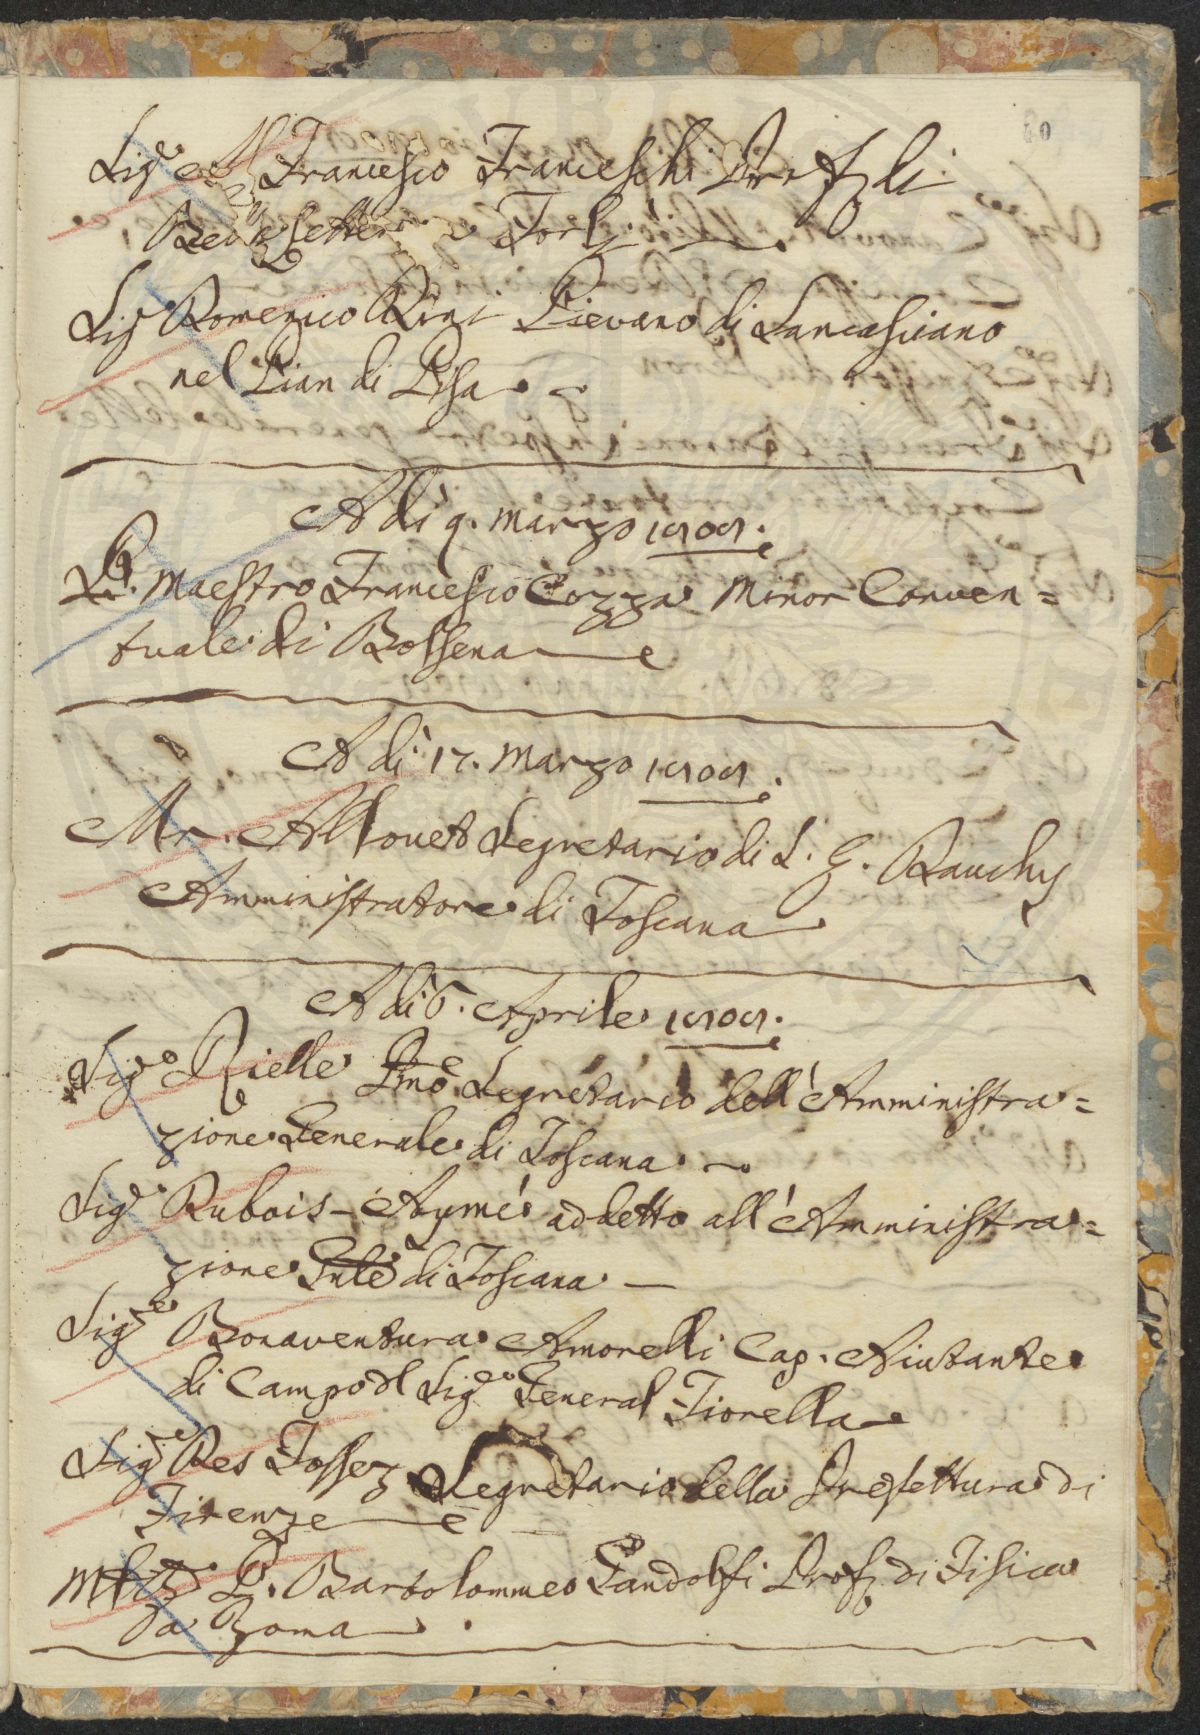 40
Sig.e Ab. Francesco Franceschi Prof. di
Belle Lettere a Forlì
Sig. Domenico Dini Pievano di Sancasciano
nel Pian di Pisa.
A dì 9. Marzo 1809.
P. Maestro Francesco Cozza Minor Conven=
tuale di Bolsena
A dì 17. Marzo 1809.
Mr. Allouet Segretario di S. E. Dauchy
Amministratore di Toscana
A dì 6. Aprile 1809.
Sig.e Rielle Pmo. Segretario dell' Amministra=
zione Generale di Toscana.
Sig.e Dubois-Aymé addetto all' Amministra=
zione Gnle di Toscana.
Sig.e Bonaventura Amorelli Cap. Aiutante
di Campo dl Sig.e General Fiorella
Sig.e Des Fossez Segretario della Prefettura di
Firenze
P. Bartolommeo Gandolfi Prof. di Fisica
a Roma.